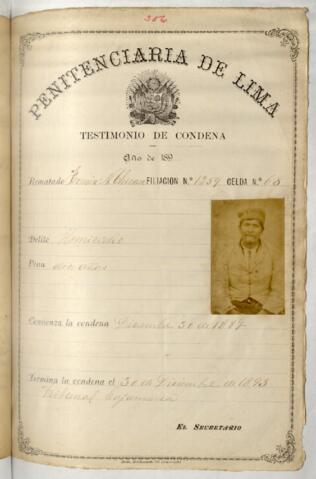 306
PENITENCIARIA DE LIMA
TESTIMONIO DE CONDENA
Año de 189
Rematado FILIACION N.º 1259 CELDA N.º 68
Delito Homicidio
Pena dos años
Comienza la condena Diciembre 30 de 1887
Termina la condena el 30 de Diciembre de 1893
Tribunal Cajamarca
EL SECRETARIO